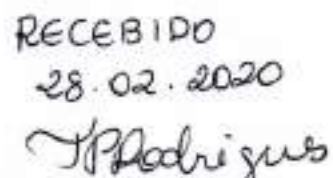 RECEBIDO
28.02.2020
JPRodrigues